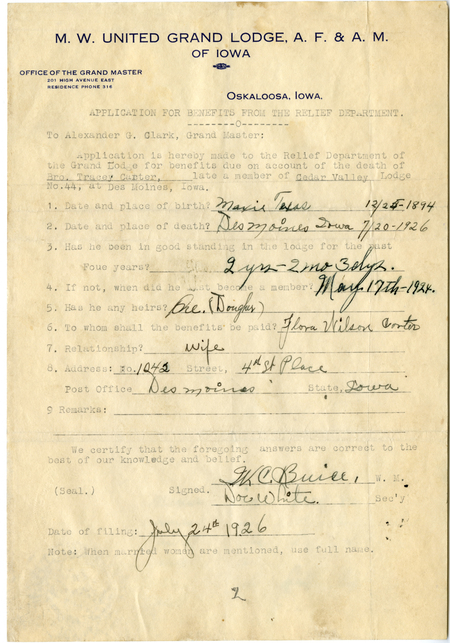 M. W. UNITED GRAND LODGE, A. F. & A. M.
OF IOWA
OFFICE OF THE GRAND MASTER
201 HIGH AVENUE EAST
RESIDENCE PHONE 316
OSKALOOSA, IOWA.
APPLICATION FOR BENEFITS FROM THE RELIEF DEPARTMENT.
To Alexander G. Clark, Grand Master:
Application is hereby made to the Relief Department of
the Grand Lodge for benefits due on account of the death of
Bro. Tracey Canter, late a member of Cedar Valley Lodge
No.44, at Des Moines, Iowa.
1. Date and place of birth? Maxie Texas 12/25-1894
2. Date and place of death? Des moines Iowa 7/20-1926
3. Has he been in good standing in the lodge for the past
Four years? 2 yrs-2mo 3dys.
4. If not, when did he last become a member? May 17th-1924.
5. Has he any heirs? One. (Doughter)
6. To whom shall the benefits be paid? Flora Wilson Conter
7. Relationship? wife
8. Address: No. 1042 Street, 4th St Place
Post Office Des moines State, Iowa
9 Remarks:
We certify that the foregoing answers are correct to the
best of our knowledge and belief.
(Seal.) Signed. W. M.
Doc White. Sec'y
Date of filing: July 24th 1926
Note: When married women are mentioned, use full name.
2